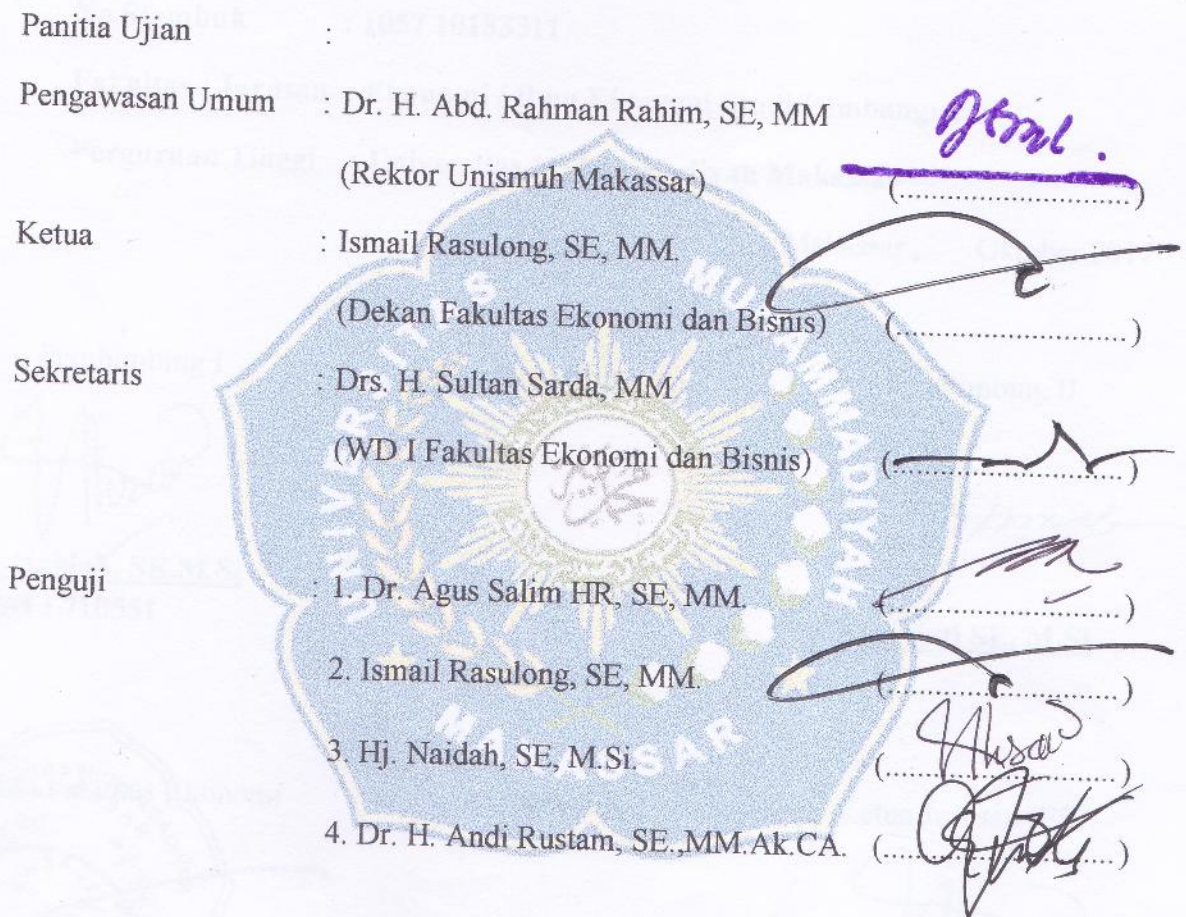 Panitia Ujian :
Pengawasan Umum : Dr. H. Abd. Rahman Rahim, SE, MM
(Rektor Unismuh Makassar) (............................)
Ketua : Ismail Rasulong, SE, MM.
(Dekan Fakultas Ekonomi dan Bisnis) (............................)
Sekretaris : Drs. H. Sultan Sarda, MM
(WD I Fakultas Ekonomi dan Bisnis) (............................)
Penguji : 1. Dr. Agus Salim HR, SE, MM. (............................)
2. Ismail Rasulong, SE, MM. (............................)
3. Hj. Naidah, SE, M.Si. (............................)
4. Dr. H. Andi Rustam, SE.,MM.Ak.CA. (............................)
UNIVERSITAS MUHAMMADIYAH
MAKASSAR